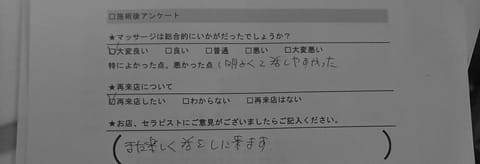 □施術後アンケート
★マッサージは総合的にいかがだったでしょうか?
☑大変良い □良い □普通 □悪い □大変悪い
特によかった点、悪かった点 明るくて話しやすかった
★再来店について
☑再来店したい □わからない □再来店はない
★お店、セラピストにご意見がございましたらご記入ください。
(また楽しく話をしに来ます)